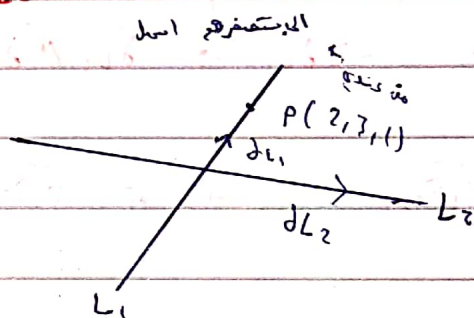 اسهل
من عندي
P(2,3,1)
dL1
dL2
L2
L1